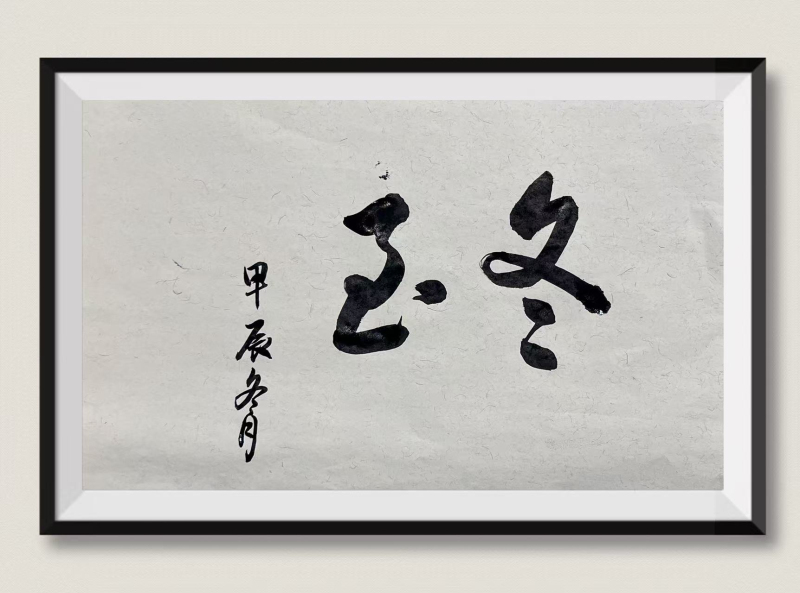 冬玉
甲辰冬月